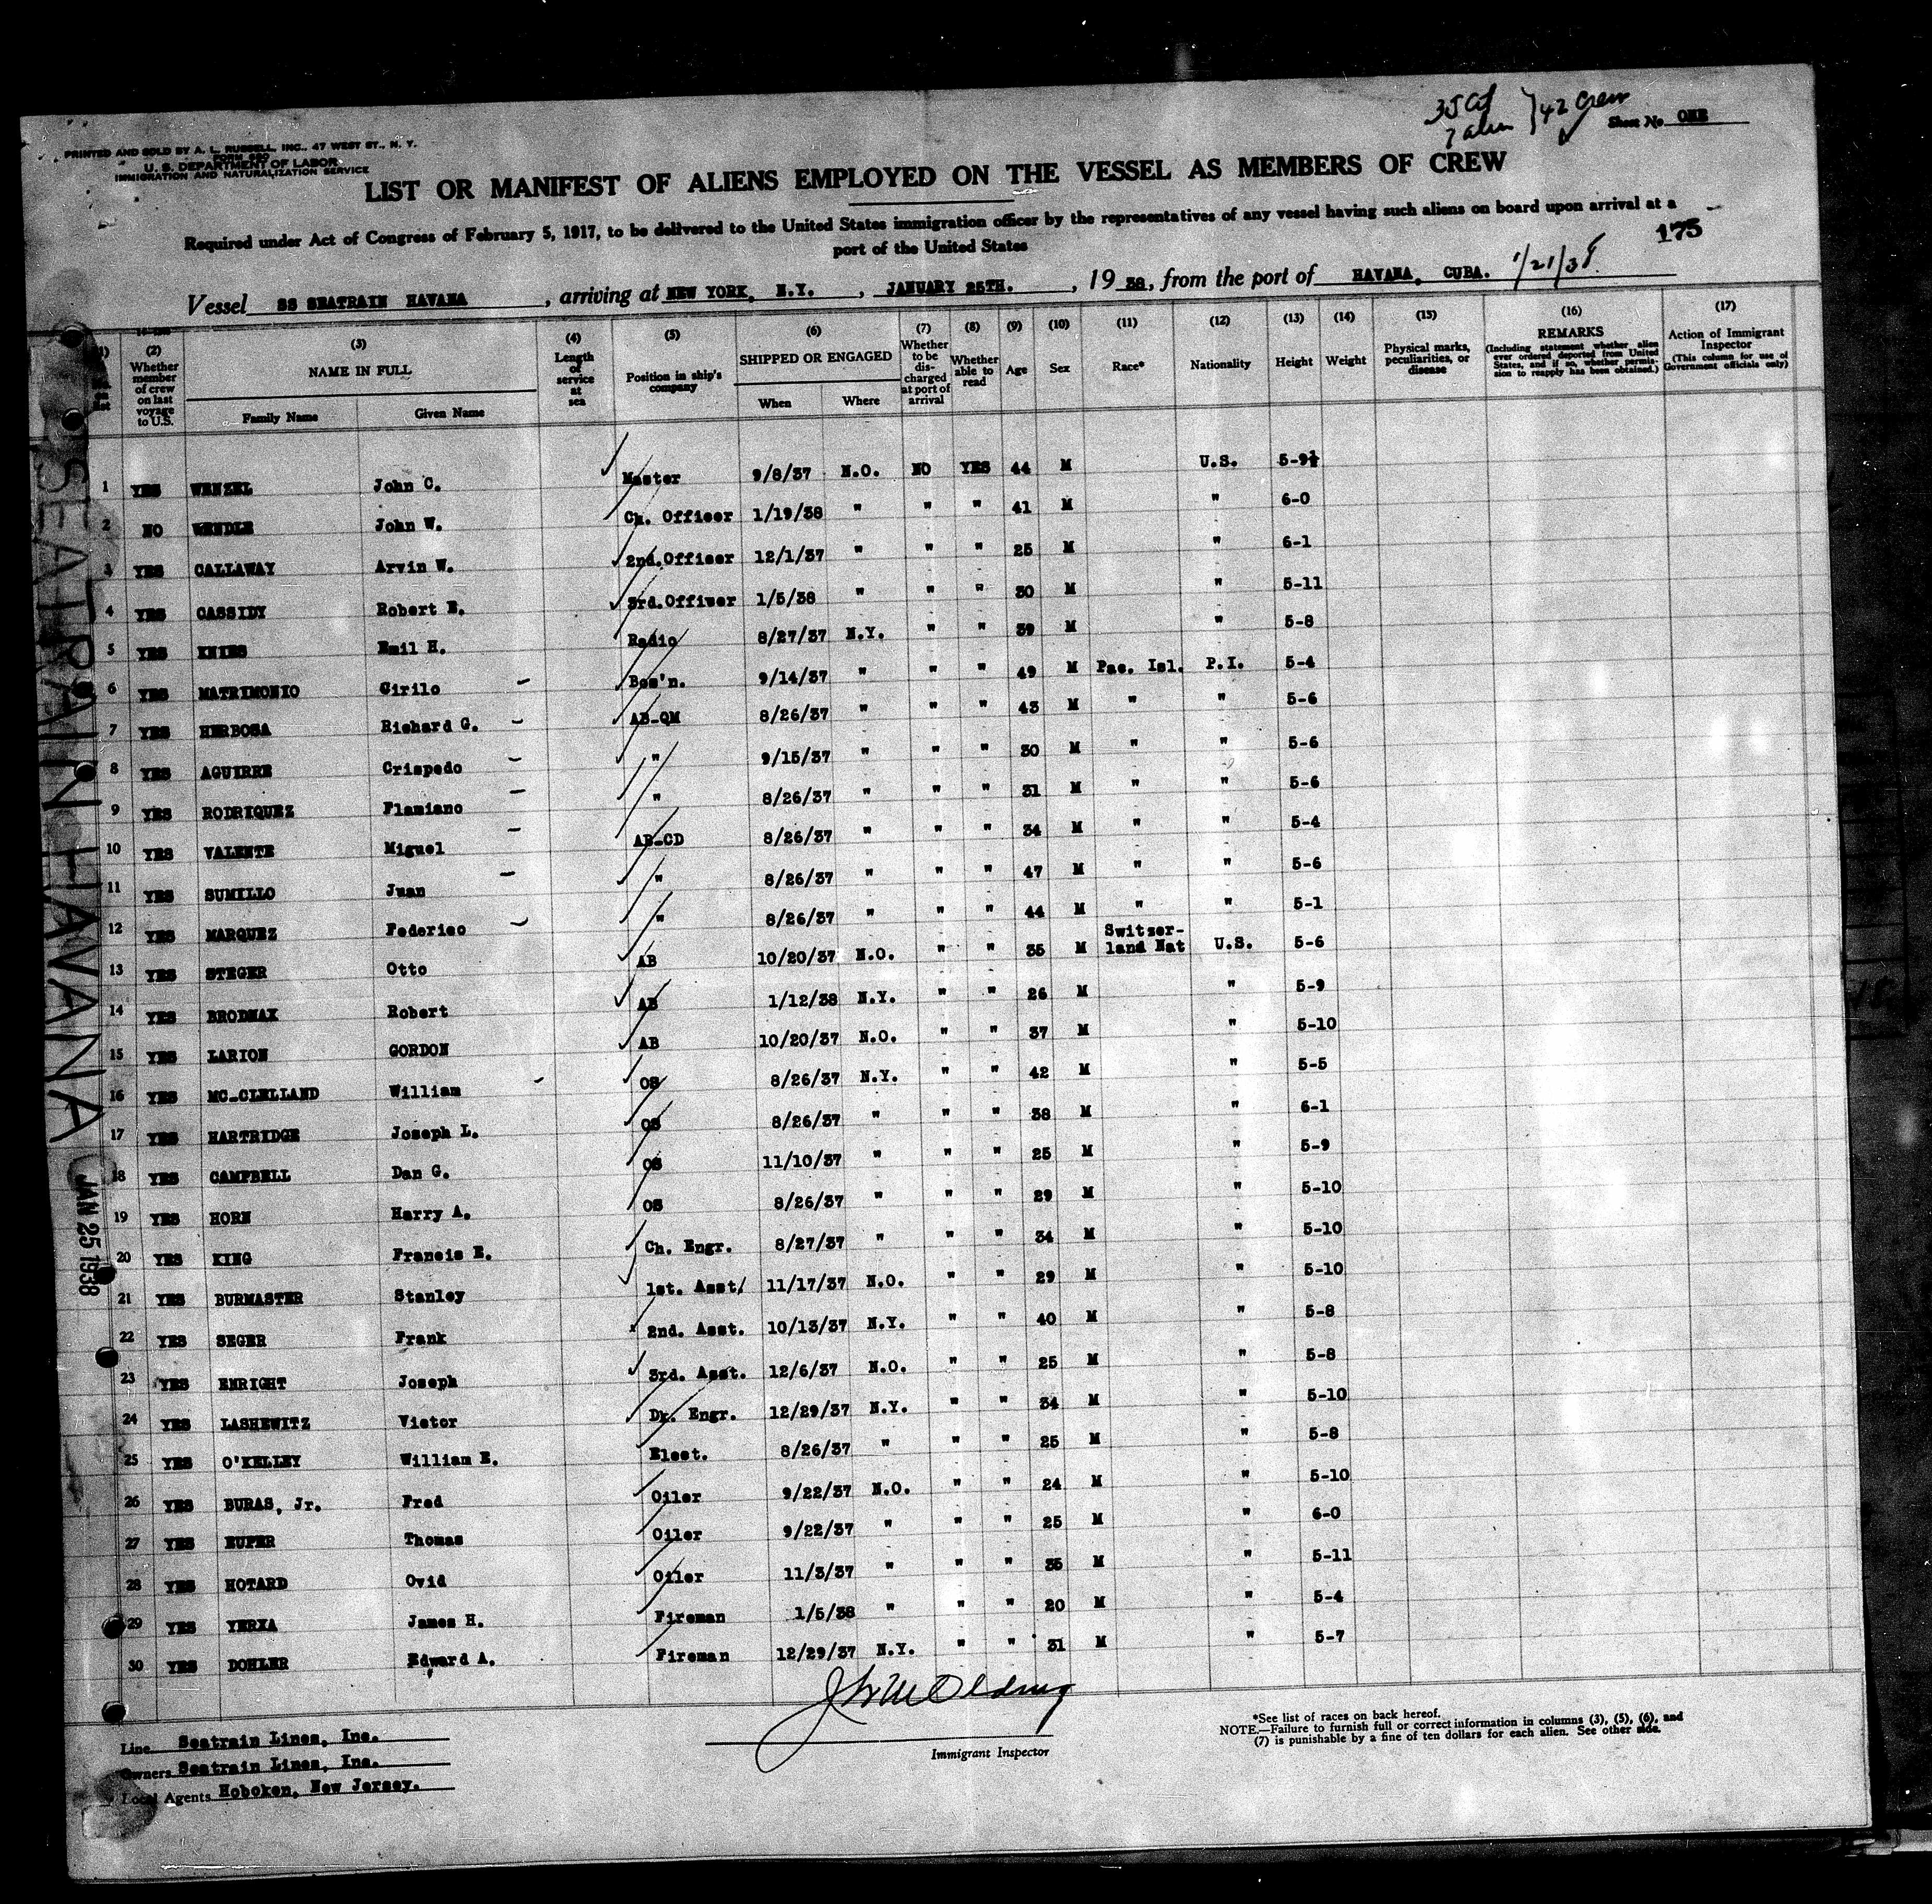 35 Cit
7 alien } 42 Crew
Sheet No. ONE
PRINTED AND SOLD BY A. L. RUSSELL, INC., 47 WEST ST., N. Y.
FORM 680
U. S. DEPARTMENT OF LABOR
IMMIGRATION AND NATURALIZATION SERVICE
LIST OR MANIFEST OF ALIENS EMPLOYED ON THE VESSEL AS MEMBERS OF CREW
Required under Act of Congress of February 5, 1917, to be delivered to the United States immigration officer by the representatives of any vessel having such aliens on board upon arrival at a
port of the United States
175
Vessel SS SEATRAIN HAVANA, arriving at NEW YORK, N.Y., JANUARY 25TH., 19 38, from the port of HAVANA, CUBA. 1/21/38
(2) Whether member of crew on last voyage to U.S.
(3) NAME IN FULL Family Name Given Name
(4) Length of service at sea
(5) Position in ship's company
(6) SHIPPED OR ENGAGED When Where
(7) Whether to be discharged at port of arrival
(8) Whether able to read
(9) Age
(10) Sex
(11) Race*
(12) Nationality
(13) Height
(14) Weight
(15) Physical marks, peculiarities, or disease
(16) REMARKS (Including statement whether alien ever ordered deported from United States, and if so, whether permission to reapply has been obtained.)
(17) Action of Immigrant Inspector (This column for use of Government officials only)
1 YES WENZEL John C. Master 9/8/37 N.O. NO YES 44 M U.S. 5-9½
2 NO WENDLE John W. Ch. Officer 1/19/38 " " " 41 M " 6-0
3 YES CALLAWAY Arvin W. 2nd.Officer 12/1/37 " " " 25 M " 6-1
4 YES CASSIDY Robert E. 3rd.Officer 1/5/38 " " " 30 M " 5-11
5 YES KNIES Emil H. Radio 8/27/37 N.Y. " " 39 M " 5-8
6 YES MATRIMONIO Cirilo Bos'n. 9/14/37 " " " 49 M Pac. Isl. P.I. 5-4
7 YES HERBOSA Richard G. AB-QM 8/26/37 " " " 43 M " " 5-6
8 YES AGUIRRE Crispedo " 9/15/37 " " " 30 M " " 5-6
9 YES RODRIQUEZ Flamiano " 8/26/37 " " " 31 M " " 5-6
10 YES VALENTE Miguel AB-CD 8/26/37 " " " 34 M " " 5-4
11 YES SUMILLO Juan " 8/26/37 " " " 47 M " " 5-6
12 YES MARQUEZ Federico " 8/26/37 " " " 44 M " " 5-1
13 YES STEGER Otto AB 10/20/37 N.O. " " 35 M Switzer-land Nat U.S. 5-6
14 YES BRODMAX Robert AB 1/12/38 N.Y. " " 26 M " 5-9
15 YES LARION GORDON AB 10/20/37 N.O. " " 37 M " 5-10
16 YES MC-CLELLAND William OS 8/26/37 N.Y. " " 42 M " 5-5
17 YES HARTRIDGE Joseph L. OS 8/26/37 " " " 38 M " 6-1
18 YES CAMPBELL Dan G. OS 11/10/37 " " " 25 M " 5-9
19 YES HORN Harry A. OS 8/26/37 " " " 29 M " 5-10
20 YES KING Francis E. Ch. Engr. 8/27/37 " " " 34 M " 5-10
21 YES BURMASTER Stanley 1st. Asst/ 11/17/37 N.O. " " 29 M " 5-10
22 YES SEGER Frank 2nd. Asst. 10/13/37 N.Y. " " 40 M " 5-8
23 YES ENRIGHT Joseph 3rd. Asst. 12/6/37 N.O. " " 25 M " 5-8
24 YES LASHEWITZ Victor Dk. Engr. 12/29/37 N.Y. " " 34 M " 5-10
25 YES O'KELLEY William E. Elect. 8/26/37 " " " 25 M " 5-8
26 YES BURAS, Jr. Fred Oiler 9/22/37 N.O. " " 24 M " 5-10
27 YES EUPER Thomas Oiler 9/22/37 " " " 25 M " 6-0
28 YES HOTARD Ovid Oiler 11/3/37 " " " 35 M " 5-11
29 YES YERXA James H. Fireman 1/5/38 " " " 20 M " 5-4
30 YES DOHLER Edward A. Fireman 12/29/37 N.Y. " " 31 M " 5-7
SEATRAIN HAVANA
JAN 25 1938
Immigrant Inspector
Line Seatrain Lines, Inc.
Owners Seatrain Lines, Inc.
Local Agents Hoboken, New Jersey.
*See list of races on back hereof.
NOTE.—Failure to furnish full or correct information in columns (3), (5), (6), and
(7) is punishable by a fine of ten dollars for each alien. See other side.